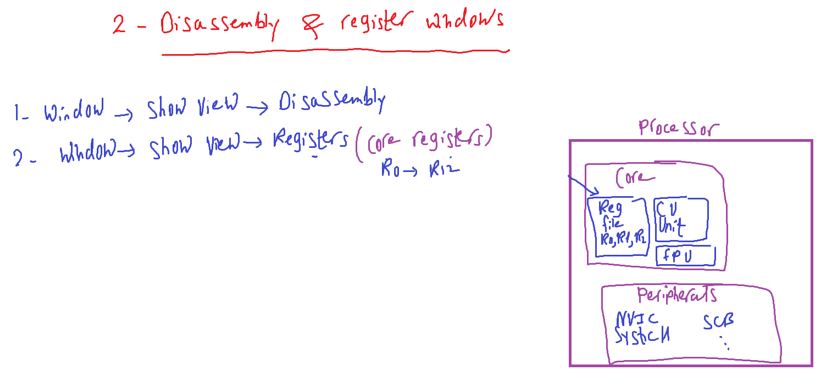 2 - Disassembly & register windows
1- Window → Show View → Disassembly
2- Window → Show View → Registers (Core registers)
R0 → R12
Processor
Core
Reg
file
R0, R1, R2
CU
Unit
FPU
Peripherals
NVIC SCB
SysTick